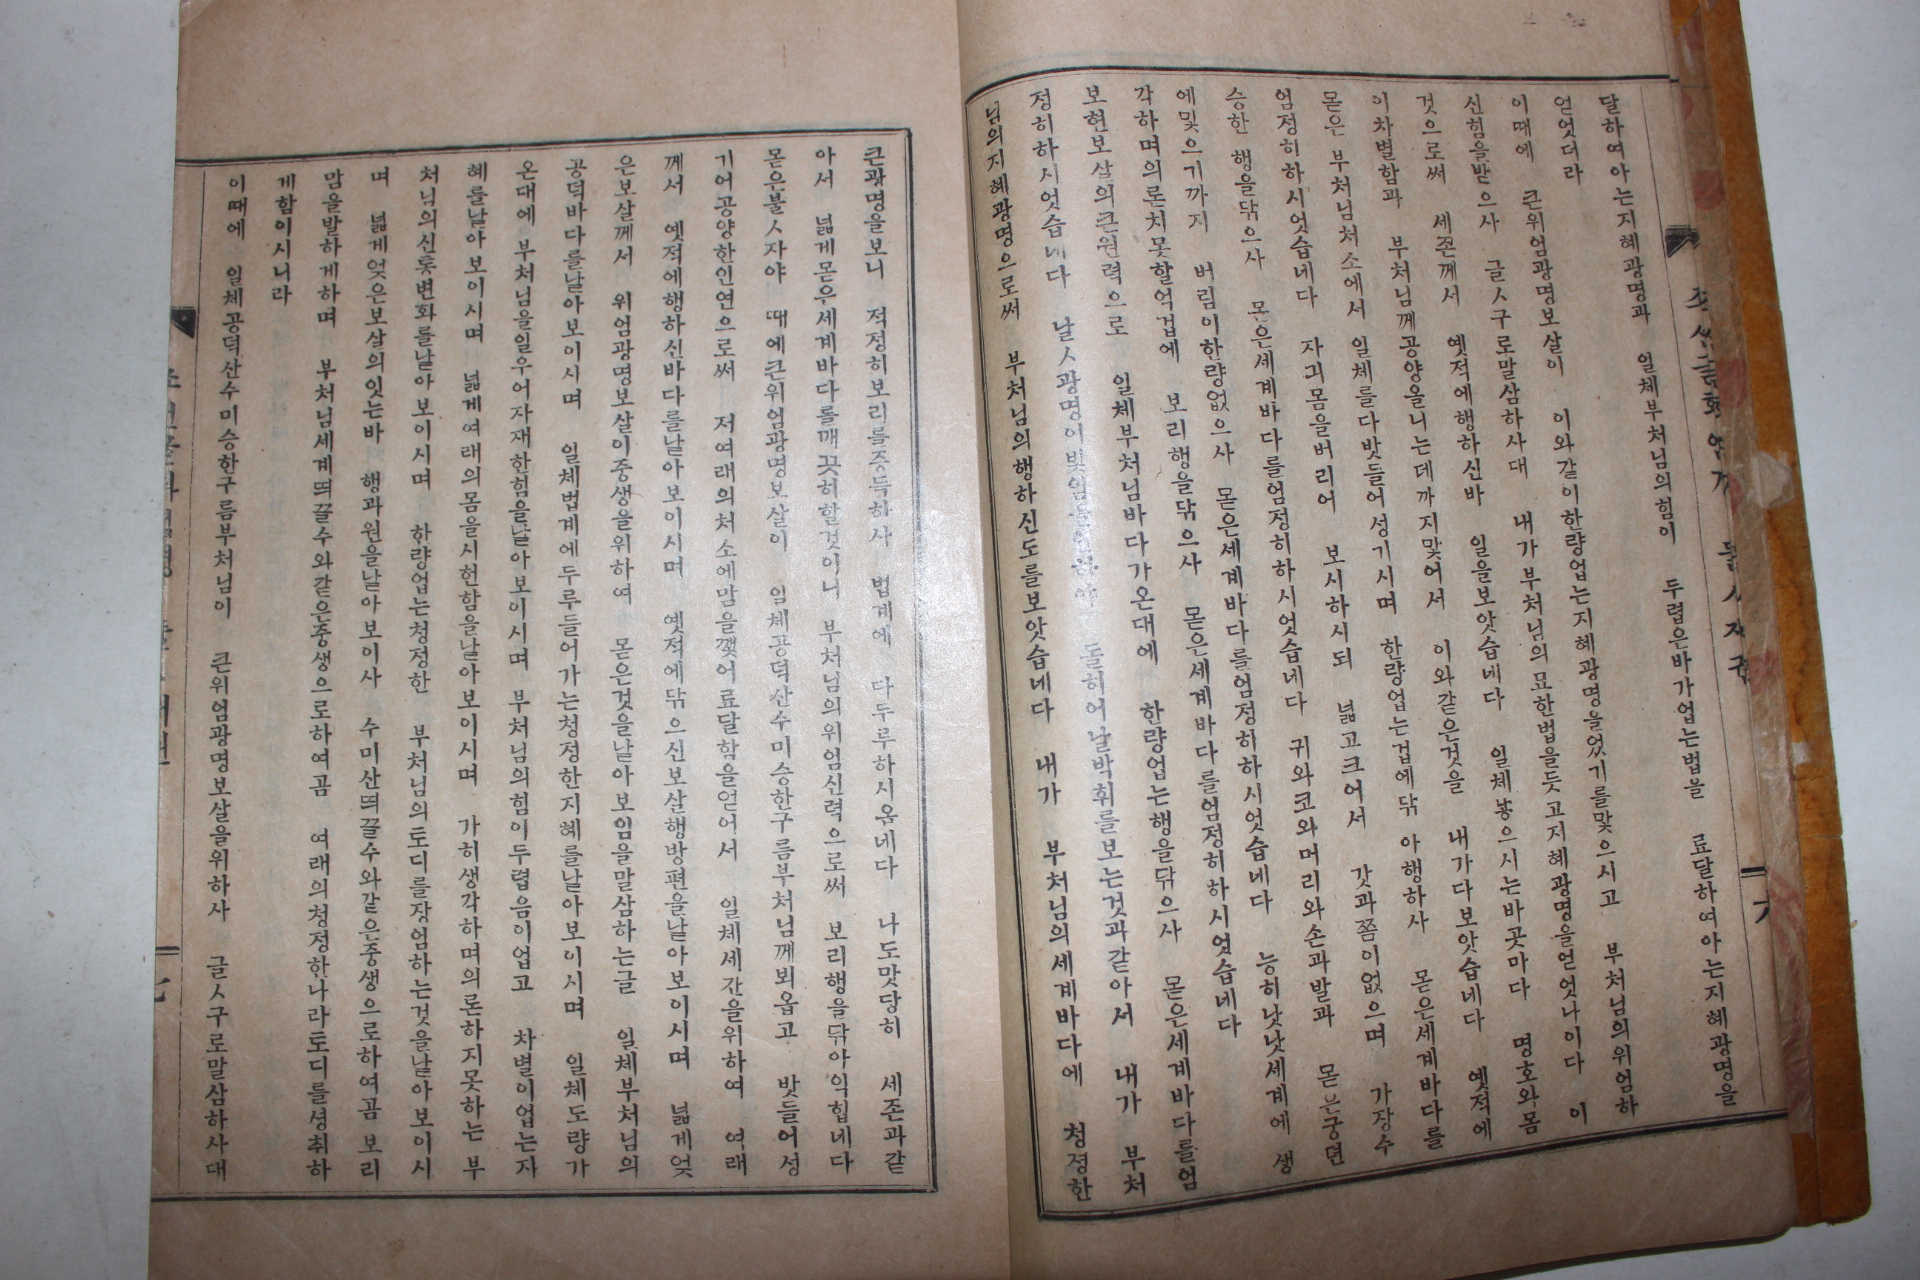 달하여아는지혜광명과 일체부처님의힘이 두렵은바가업는법을 료달하여아는지혜광명을
얻엇더라
이때에 큰위엄광명보살이 이와같이한량업는지혜광명을었기를맟으시고 부처님의위엄하
신힘을받으사 글ㅅ구로말삼하사대 내가부처님의묘한법을듯고지혜광명을얻엇나이다 이
것으로써 세존께서 옛적에행하신바 일을보앗습네다 일체놓으시는바곳마다 명호와몸
이차별함과 부처님께공양올니는데까지맟어서 이와같은것을 내가다보앗습네다 옛적에
몯은부처님처소에서 일체를다밧들어성기시며 한량업는겁에닦아행하사 몯은세계바다를
엄정히하시엇습네다 자긔몸을버리어 보시하시되 넓고크어서 갓과쯤이없으며 가장수
승한 행을닦으사 몯은세계바다를엄정히하시엇습네다 귀와코와머리와손과발과 몯은궁뎐
에및으기까지 버림이한량없으사 몯은세계바다를엄정히하시엇습네다 능히낫낫세계에 생
각하며의론치못할억겁에 보리행을닦으사 몯은세계바다를엄정히하시엇습네다
보현보살의큰원력으로 일체부처님바다가온대에 한량업는행을닦으사 몯은세계바다를엄
정히하시엇습네다 날ㅅ광명이 돌히어날박휘를보는것과같아서 내가 부처
님의지혜광명으로써 부처님의행하신도를보앗습네다 내가 부처님의세계바다에 청정한
큰광명을보니 적정히보리를증득하사 법계에 다두루하시옴네다 나도맛당히 세존과같
아서 넓게몯은세계바다를깨끗히할것이니 부처님의위엄신력으로써 보리행을닦아익힙네다
몯은불ㅅ자야 때에큰위엄광명보살이 일체공덕산수미승한구름부처님께뵈옵고 밧들어성
기어공양한인연으로써 저여래의처소에맘을깻어료달함을얻어서 일체세간을위하여 여래
께서 옛적에행하신바다를낱아보이시며 옛적에닦으신보살행방편을낱아보이시며 넓게엇
은보살께서 위엄광명보살이중생을위하여 몯은것을낱아보임을말삼하는글 일체부처님의
공덕바다를낱아보이시며 일체법계에두루들어가는청정한지혜를낱아보이시며 일체도량가
온대에 부처님을일우어자재한힘을낱아보이시며 부처님의힘이두렵음이업고 차별이업는지
혜를낱아보이시며 넓게여래의몸을시현함을낱아보이시며 가히생각하며의론하지못하는 부
처님의신통변화를낱아보이시며 한량업는청정한 부처님의토디를장엄하는것을낱아보이시
며 넓게엇은보살의잇는바 행과원을낱아보이사 수미산띄끌수와같은중생으로하여곰 보리
맘을발하게하며 부처님세계띄끌수와같은중생으로하여곰 여래의청정한나라토디를셩취하
게함이시니라
이때에 일체공덕산수미승한구름부처님이 큰위엄광명보살을위하사 글ㅅ구로말삼하사대
七